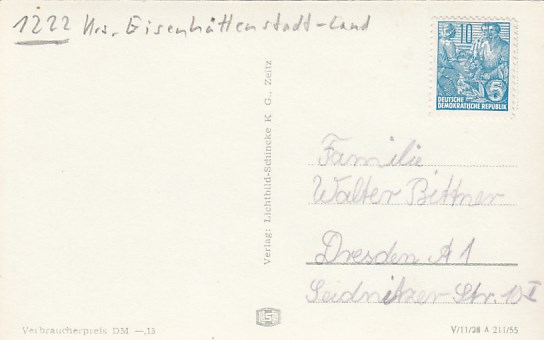 1222 Krs. Eisenhüttenstadt-Land
10
DEUTSCHE
DEMOKRATISCHE REPUBLIK
5
Verlag: Lichtbild-Schincke K G., Zeitz
Familie
Walter Bittner
Dresden A 1
Seidnitzer-Str. 10 I
Verbraucherpreis DM —,15
V/11/28 A 211/55